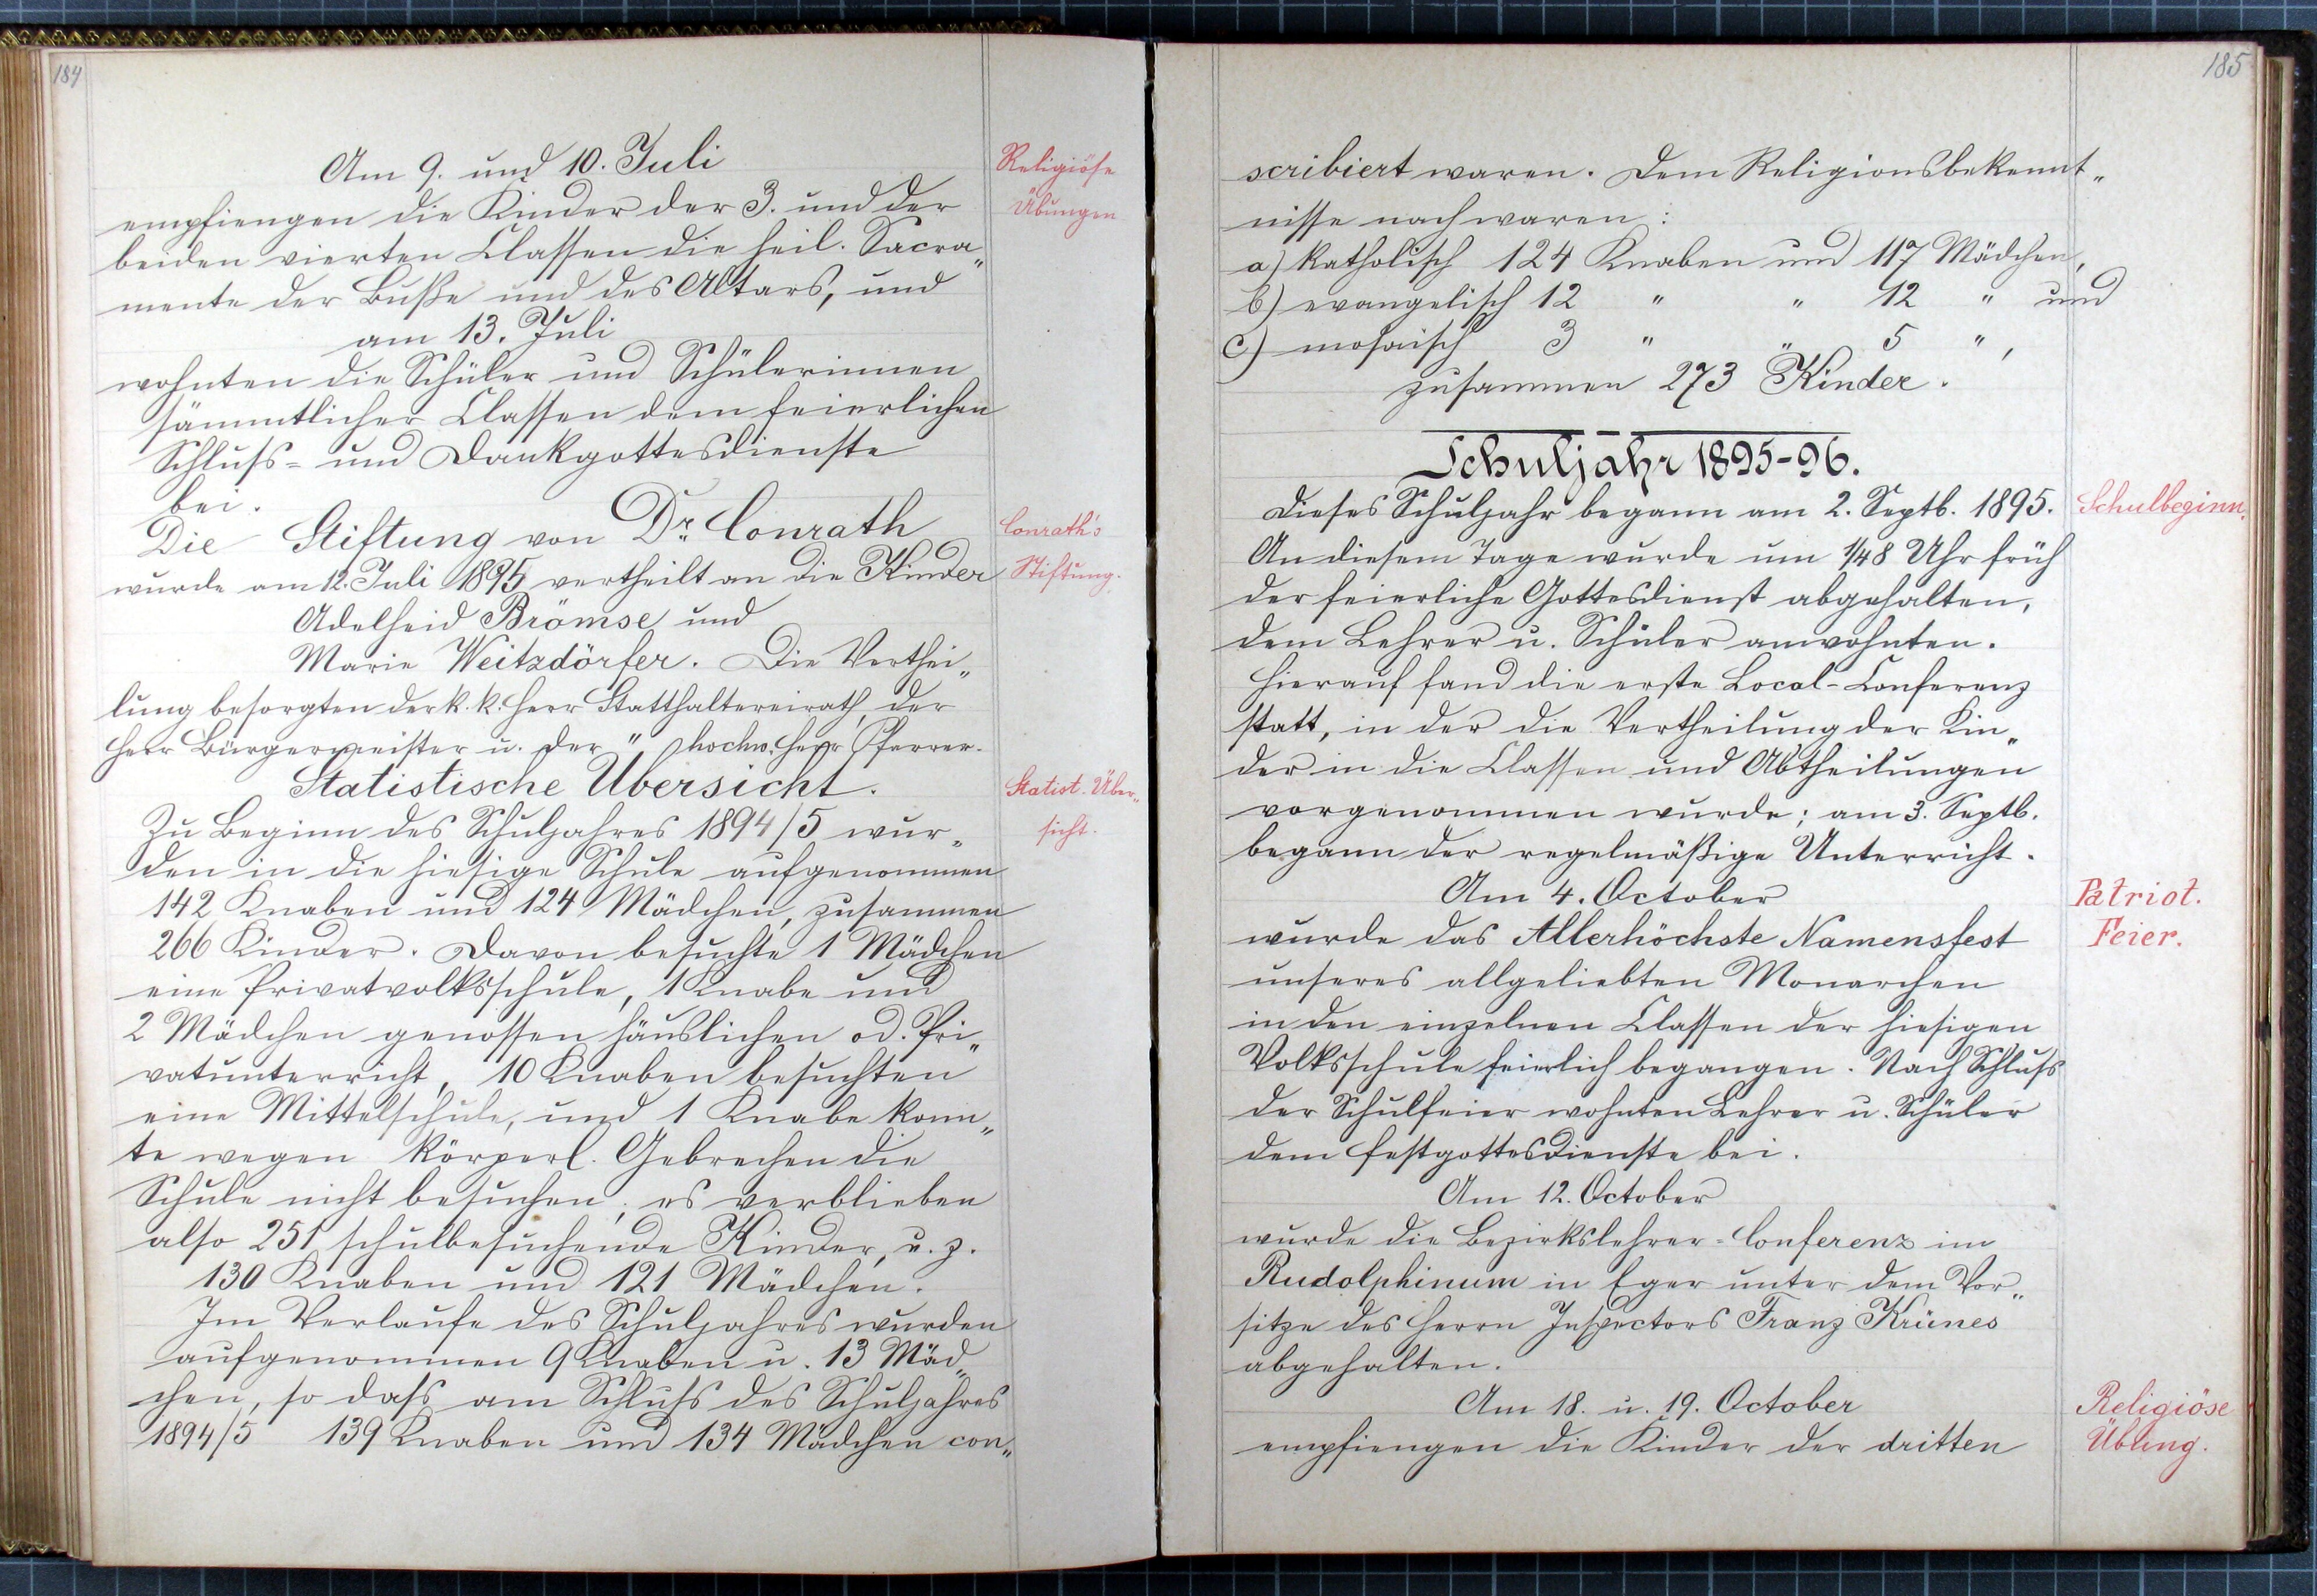 184
Am 9. und 10. Juli
Religiöse
empfiengen die Kinder der 3. und der
Übungen
beiden vierten Classen die heil. Sacra„
mente der Buße und des Altars, und
am 13. Juli
wohnten die Schüler und Schülerinnen
sämmtlicher Classen dem feierlichen
Schluss- und Dankgottesdienste
bei.
Die Stiftung von Dr. Conrath
Conrath's
wurde am 12. Juli 1895 vertheilt an die Kinder
Stiftung.
Adelheid Brömse und
Marie Weitzdörfer. Die Verthei„
lung besorgten der k. k. Herr Statthaltereirath, der
Herr Bürgermeister u. der " hochw. Herr Pfarrer.
Statistische Übersicht.
Statist. Über„
Zu Beginn des Schuljahres 1894/5 wur„
sicht.
den in die hiesige Schule aufgenommen
142 Knaben und 124 Mädchen, zusammen
266 Kinder. Davon besuchte 1 Mädchen
eine Privatvolksschule, 1 Knabe und
2 Mädchen genossen häuslichen od. Pri„
vatunterricht, 10 Knaben besuchten
eine Mittelschule, und 1 Knabe konn„
te wegen körperl. Gebrechen die
Schule nicht besuchen; es verblieben
also 251 schulbesuchende Kinder, u. z.
130 Knaben und 121 Mädchen.
Im Verlaufe des Schuljahres wurden
aufgenommen 9 Knaben u. 13 Mäd„
chen, so dass am Schluss des Schuljahres
1894/5 139 Knaben und 134 Mädchen con„
185
scribiert waren. Dem Religionsbekennt„
nisse nach waren:
a) katholisch 124 Knaben und 117 Mädchen,
b) evangelisch 12 " " 12 " und
c) mosaisch 3 " " 5 ",
zusammen 273 Kinder.
Schuljahr 1895-96.
Dieses Schuljahr begann am 2. Septb. 1895.
Schulbeginn.
An diesem Tage wurde um 1/48 Uhr früh
der feierliche Gottesdienst abgehalten,
dem Lehrer u. Schüler anwohnten.
Hierauf fand die erste Local-Conferenz
statt, in der die Vertheilung der Kin„
der in die Classen und Abtheilungen
vorgenommen wurde; am 3. Septb.
begann der regelmäßige Unterricht.
Am 4. October
Patriot.
wurde das Allerhöchste Namensfest
Feier.
unseres allgeliebten Monarchen
in den einzelnen Classen der hiesigen
Volksschule feierlich begangen. Nach Schluss
der Schulfeier wohnten Lehrer u. Schüler
dem Festgottesdienste bei.
Am 12. October
wurde die Bezirkslehrer-Conferenz im
Rudolphinum in Eger unter dem Vor„
sitze des Herrn Inspectors Franz Krünes
abgehalten.
Am 18. u. 19. October
Religiöse
empfiengen die Kinder der dritten
Übung.